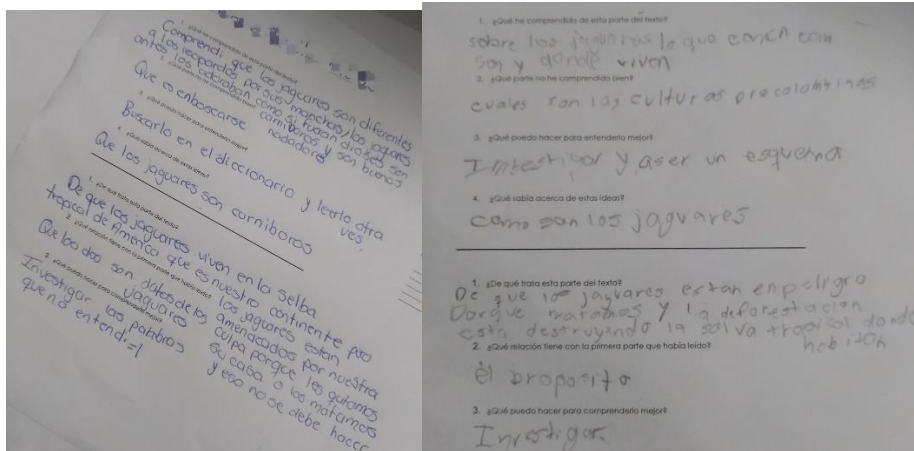 1. ¿Qué he comprendido de esta parte del texto?
Comprendi que los jaguares son diferentes
a los leopardos por sus manchas, los jaguares
antes los adoraban como si fueran dioses sen
carniboros y son buenos
nadadores
2. ¿Qué parte no he comprendido bien?
Que es enboscarse
3. ¿Qué puedo hacer para entenderlo mejor?
Buscarlo en el diccionario y leerlo otra
ves.
4. ¿Qué sabía acerca de estas ideas?
Que los jaguares son carniboros
1. ¿De qué trata esta parte del texto?
De que los jaguares viven en la selba
tropical de America que es nuestro continente
los jaguares estan
amenasados por nuestra
culpa porque les quitamos
su casa o los matamos
y eso no se debe hacer
2. ¿Qué relación tiene con la primera parte que había leído?
Que los dos son datos de los
jaguares
3. ¿Qué puedo hacer para comprenderlo mejor?
Investigar las palabras
que no entendi =)
1. ¿Qué he comprendido de esta parte del texto?
sobre los jaguares lo que comen com
son y donde viven
2. ¿Qué parte no he comprendido bien?
cuales son las culturas precolombinas
3. ¿Qué puedo hacer para entenderlo mejor?
y aser un esquema
4. ¿Qué sabía acerca de estas ideas?
como son los jaguares
1. ¿De qué trata esta parte del texto?
De que los jaguares estan en peligro
Porque matamos y la deforestacion
esta destruyendo la selva tropical donde
habitan
2. ¿Qué relación tiene con la primera parte que había leído?
el proposito
3. ¿Qué puedo hacer para comprenderlo mejor?
Investigar